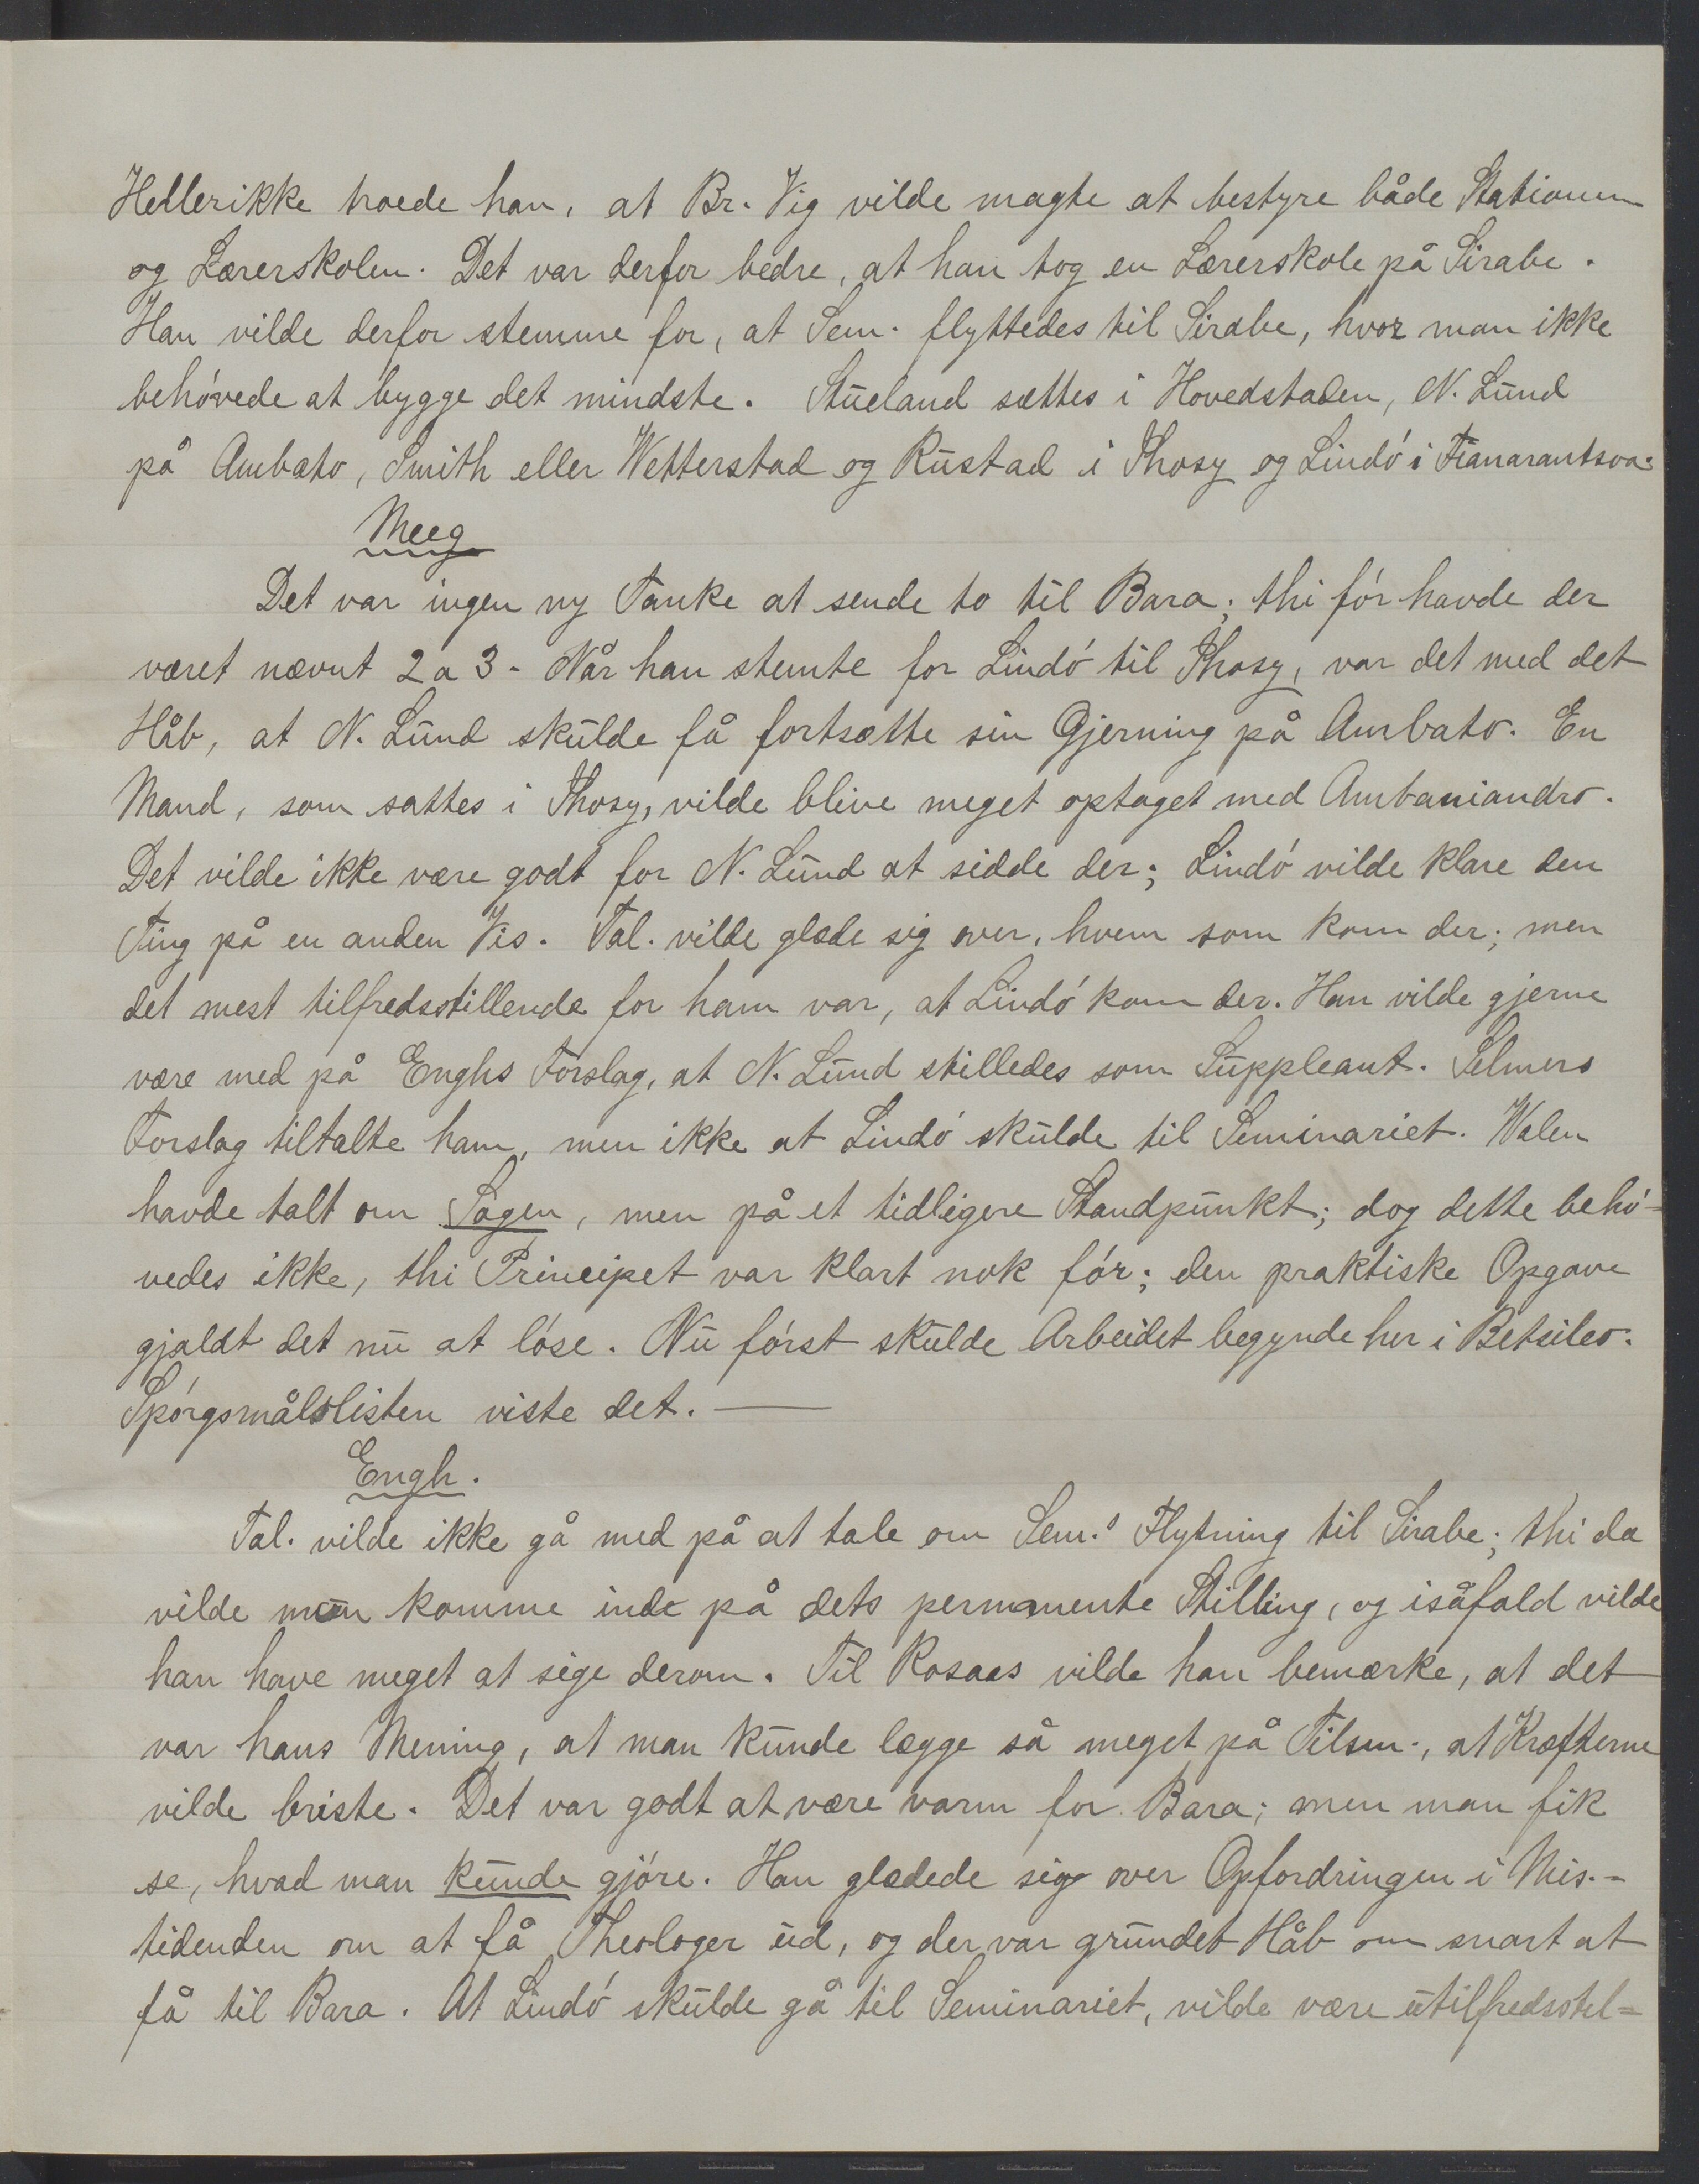 Hellerikke troede han, at Br. Vig vilde magte at bestyre både Stationen
og Lærerskolen. Det var derfor bedre, at han tog en Lærerskole på Sirabe.
Han vilde derfor stemme for, at Sem. flyttedes til Sirabe, hvor man ikke
behóvede at bygge det mindste. Stueland sættes i Hovedstaden, N. Lund
på Ambato, Smith eller Wetterstad og Rustad i Ihosy og Lindó i Fianarantsoa.
Meeg
Det var ingen ny Tanke at sende to til Bara; thi fór havde der
været nævnt 2 a 3. Når han stemte for Lindó til Ihosy, var det med det
Håb, at N. Lund skulde få fortsætte sin Gjerning på Ambato. En
Mand, som sattes i Ihosy, vilde blive meget optaget med Ambaniandro.
Det vilde ikke være godt for N. Lund at sidde der; Lindó vilde klare den
Ting på en anden Vis. Tal. vilde glæde sig over, hvem som kom der; men
det mest tilfredsstillende for ham var, at Lindó kom der. Han vilde gjerne
være med på Enghs Forslag, at N. Lund stilledes som Suppleant. Selmers
Forslag tiltalte ham, men ikke at Lindó skulde til Seminariet. Walen
havde talt om Sagen, men på et tidligere Standpunkt; dog dette behó-
vedes ikke, thi Principet var klart nok fór; den praktiske Opgave
gjaldt det nu at lóse. Nu fórst skulde Arbeidet begynde her i Betsileo.
Spórgsmålslisten viste det. —
Engh.
Tal. vilde ikke gå med på at tale om Sem.s Flytning til Sirabe; thi da
vilde man komme inde på dets permanente Stilling, og isåfald vilde
han have meget at sige derom. Til Rosaas vilde han bemærke, at det
var hans Mening, at man kunde lægge så meget på Tilsm., at Kræfterne
vilde briste. Det var godt at være varm for Bara; men man fik
se, hvad man kunde gjóre. Han glædede sig over Opfordringen i Mis.-
tidenden om at få Theologer ud, og der var grundet Håb om snart at
få til Bara. At Lindó skulde gå til Seminariet, vilde være utilfredsstel-